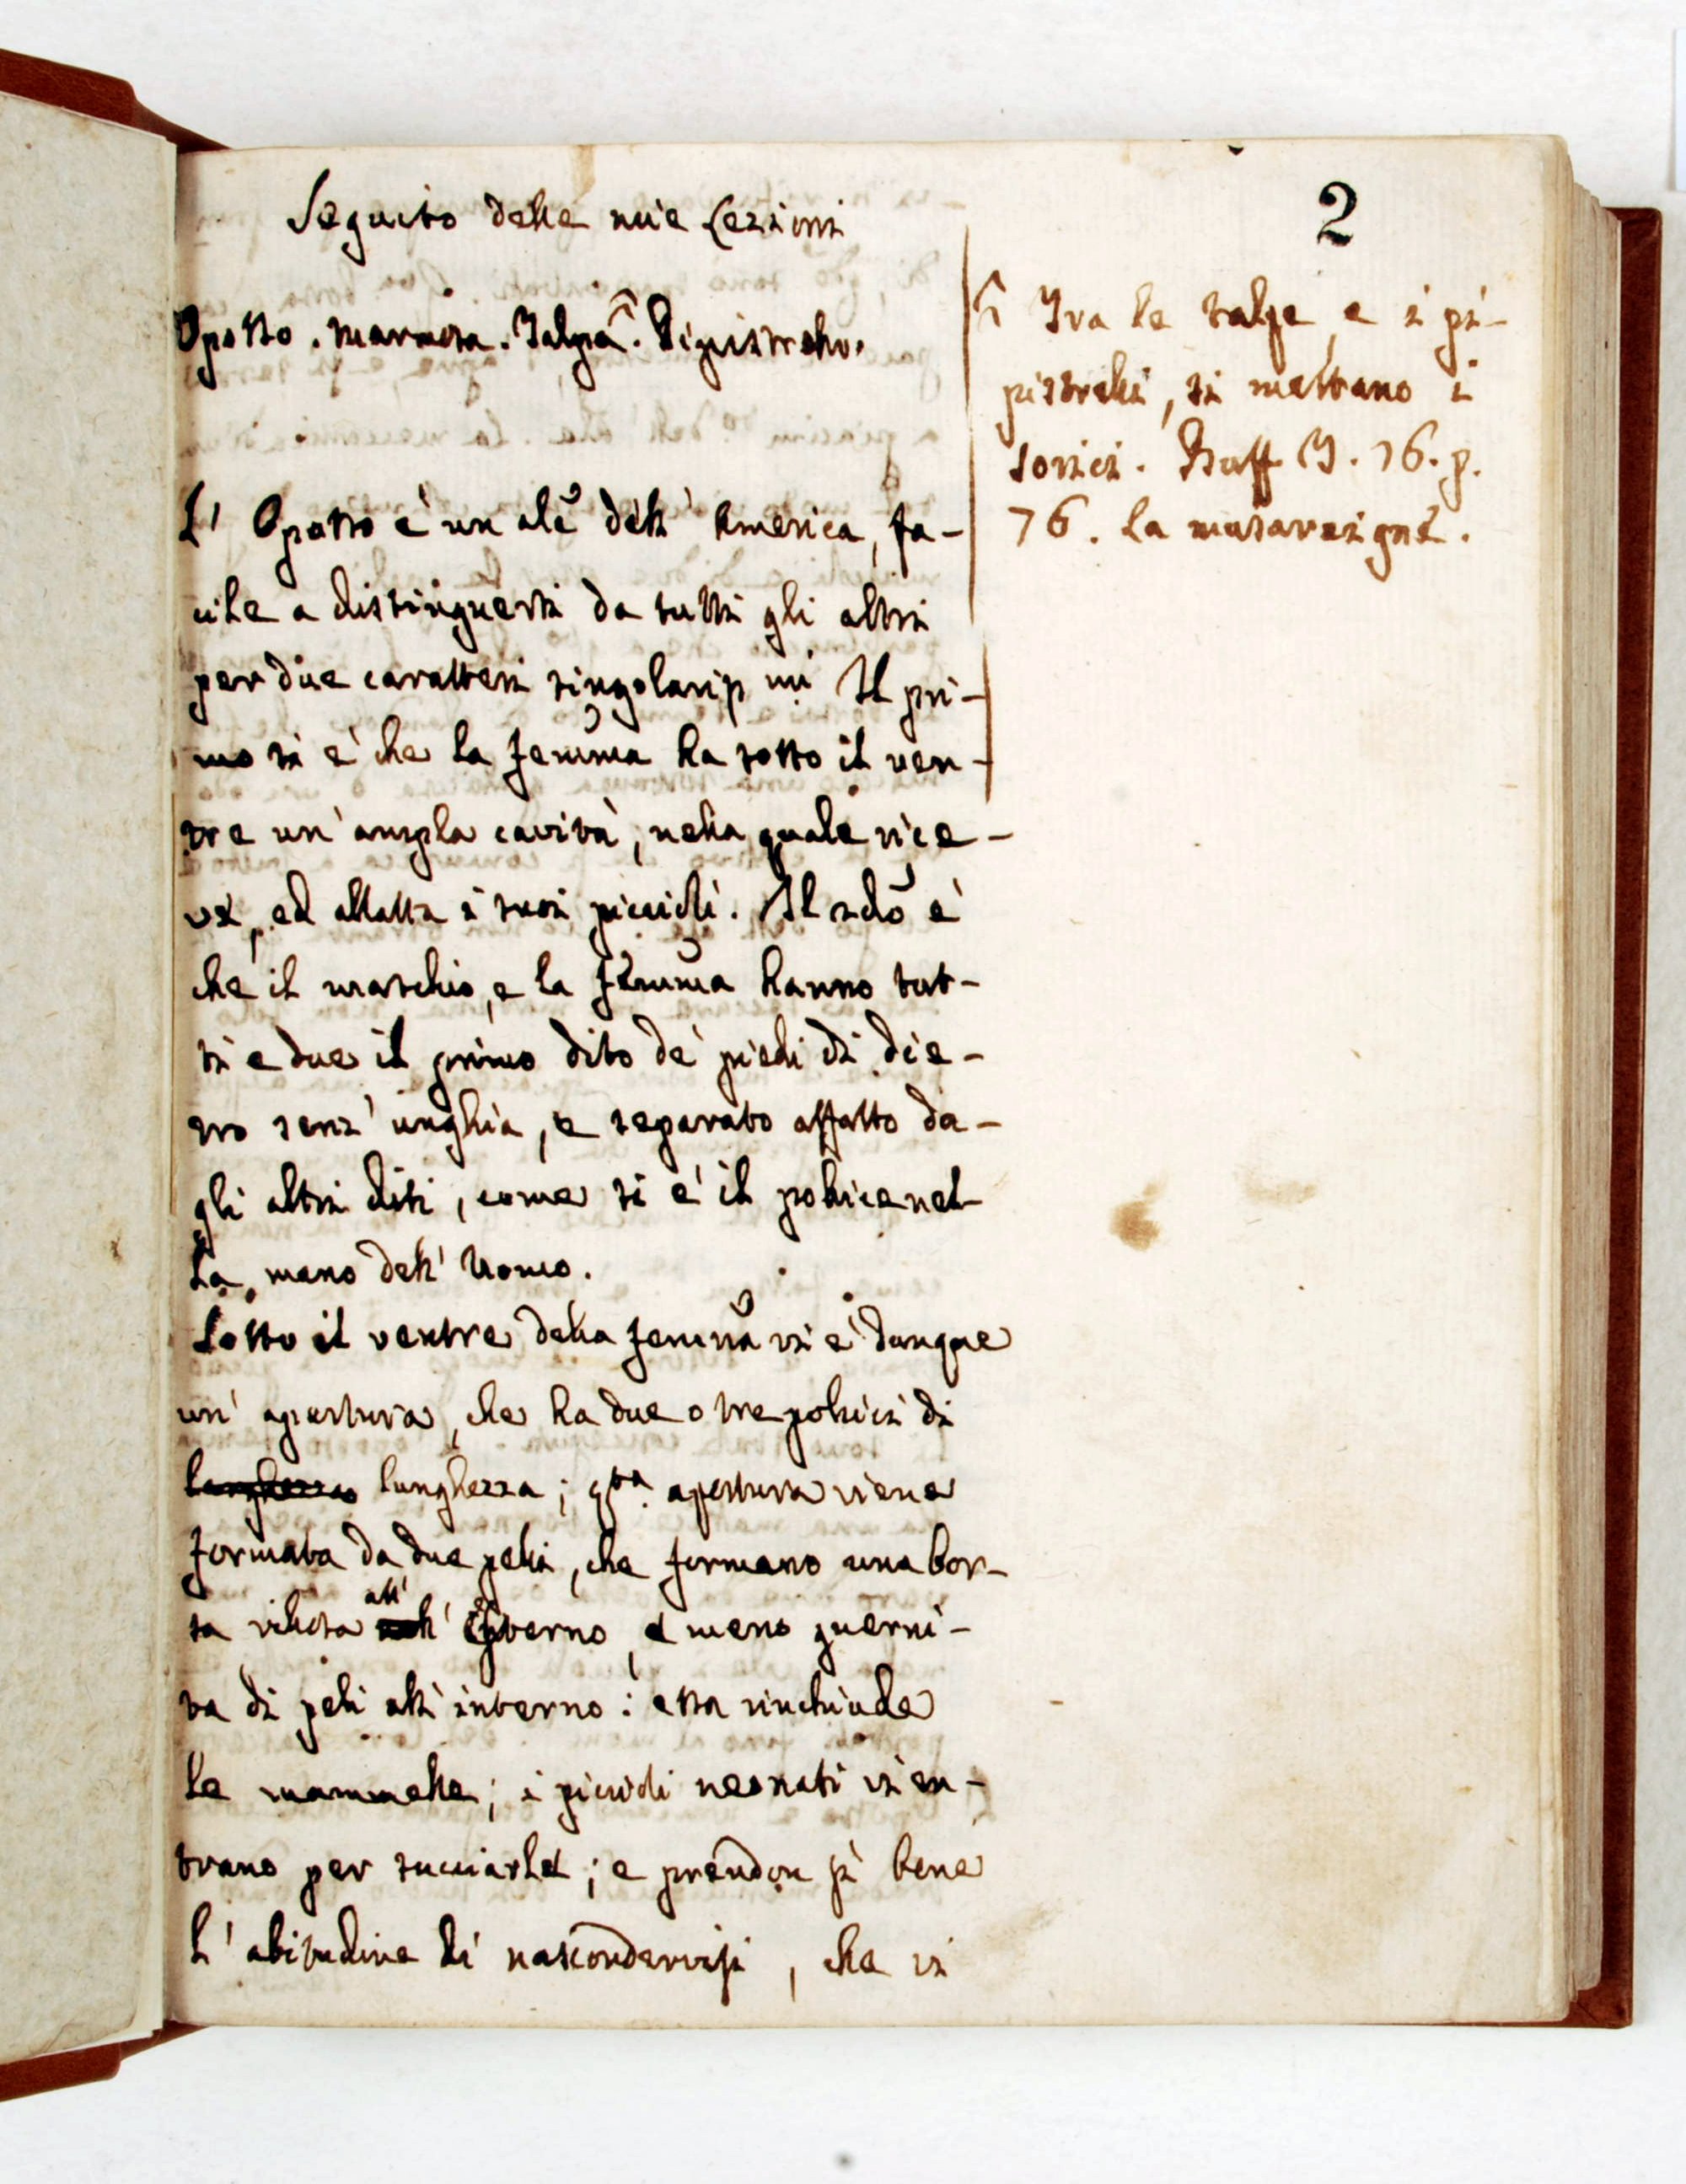 Seguito delle mie Lezioni
2
Oposso. Marmosa. Talpa^. Pipistrello.
L' Oposso è un ale dell' America, fa-
cile a distinguersi da tutti gli altri
per due caratteri singolariss.mi Il pri-
mo si è che la femina ha sotto il ven-
tre un' ampla cavità, nella quale rice-
ve, ed allatta i suoi piccioli. Il sdo è
che il maschio, e la femina hanno tut-
ti e due il primo dito de' piedi di die-
tro senz' unghia, e separato affatto da-
gli altri diti, come si è il pollice nel-
la mano dell' Uomo.
Sotto il ventre della femina vi è dunque
un' apertura, che ha due o tre pollici di
larghezza lunghezza; qta. apertura viene
formata da due pelli, che formano una bor-
sa villosa all' esterno, e meno guerni-
ta di peli all' interno: essa rinchiude
le mammelle; i piccioli neonati vi en-
trano per succiarle; e prendon sì bene
l' abitudine di nascondervisi, che vi
^ Tra le talpe, e i pi-
pistrelli, si mettano i
sorici. Buff T. 16. p.
76. La musaraigne.